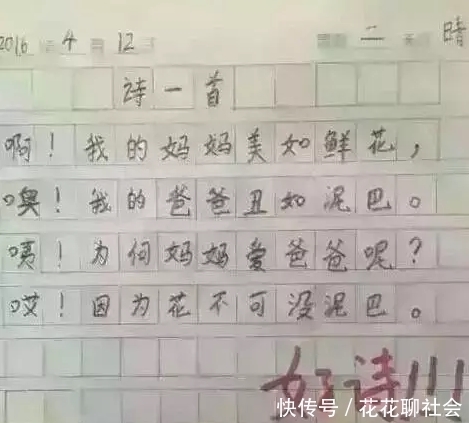 2016 年 4 月 12 日 星期 二 天气 晴
诗一首
啊！我的妈妈美如鲜花，
噢！我的爸爸丑如泥巴。
咦！为何妈妈爱爸爸呢？
哎！因为花不可没泥巴。
好诗！！！
快传号/花花聊社会